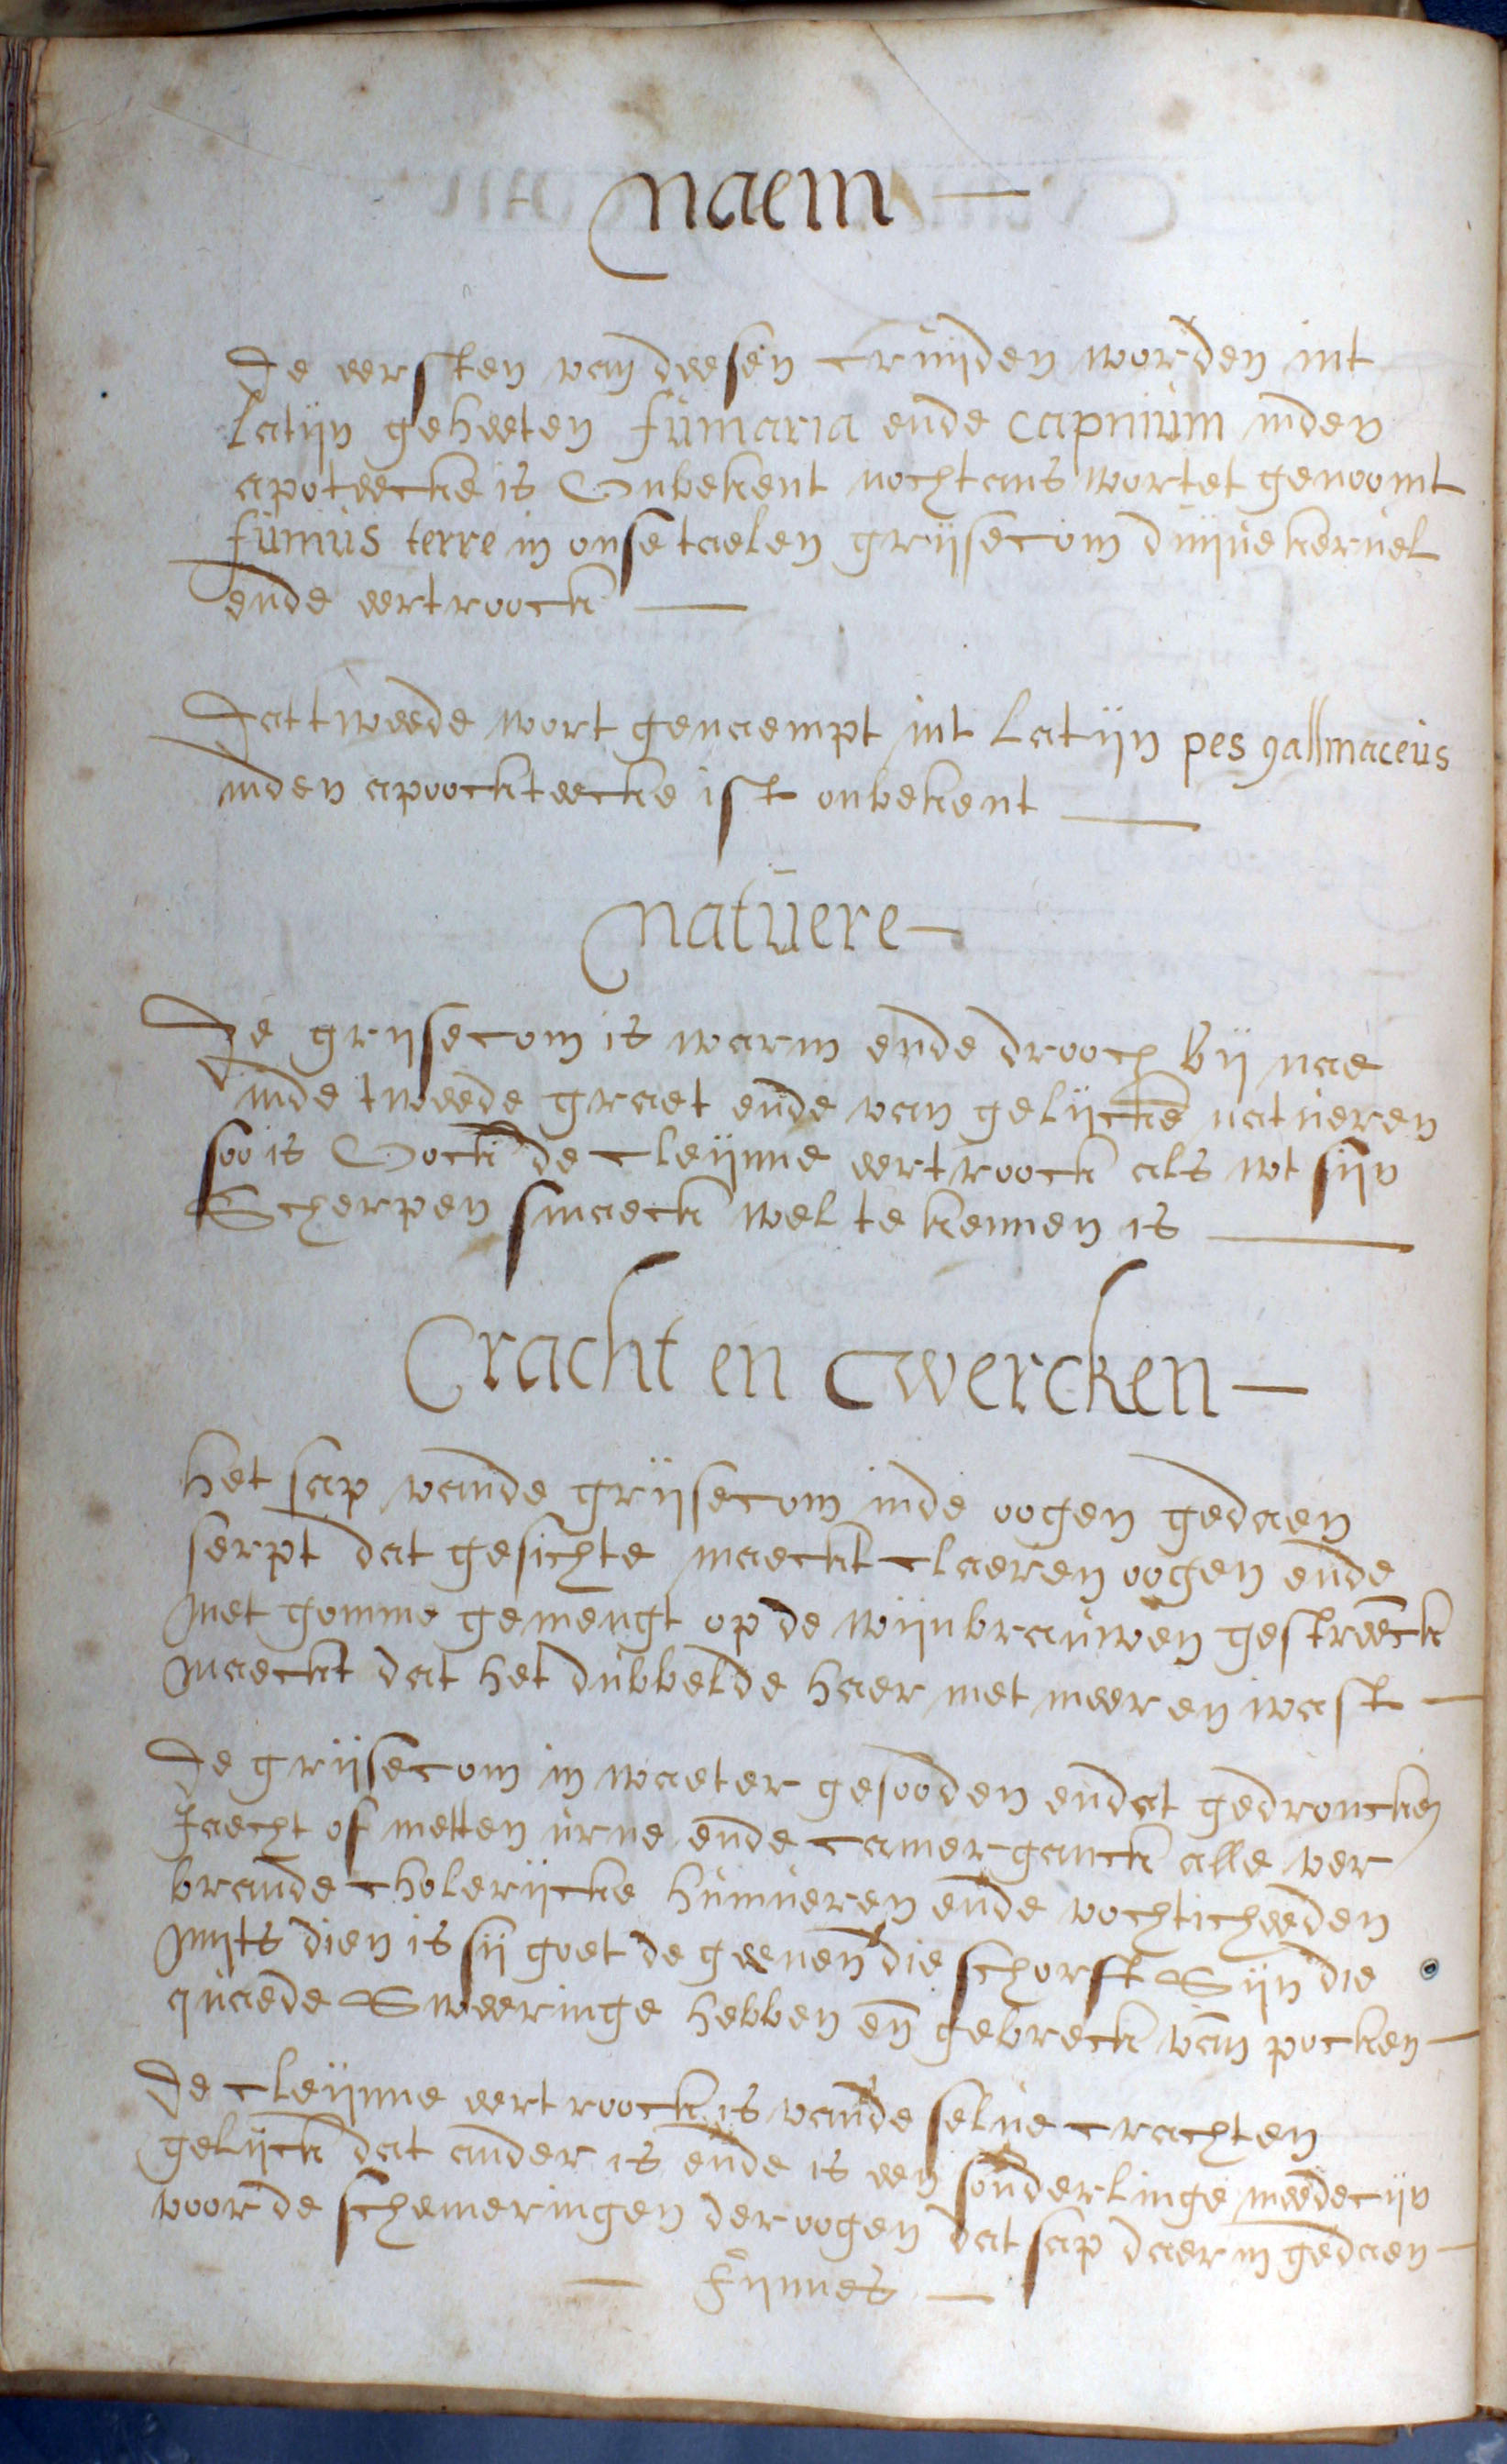 Naem
De eersten van deesen cruijden worden int
latijn geheeten fumaria ende capnium inden
apoteecke is Onbekent nochtans wortet genoomt
fumus terre in onse taelen grijsecom duijuekeruel
ende eertroock
Dat tweede wort genaempt int Latijn pes gallinaceus
inden apoockteecke ist onbekent
Natuere
De grijsecom is warm ende drooch bij nae
inde tweede graet ende van gelijcke natueren
soo is Oock de cleijnne eertroock als wt sijn
Scherpen smaeck wel te kennen is
Cracht en Wercken
het sap vande grijsecom inde oogen gedaen
serpt dat gesichte maeckt claeren oogen ende
met gomme gemengt op de wijnbrauwen gestreeck
maeckt dat het dubbelde haer met meer en wast
De grijsecom in waeter gesooden en dat gedroncken
Jaecht of metten urne ende camerganck alle ver
brande cholerijcke humueren ende vochticheeden
mijts dien is sij goet de geenen die schorft Sijn die
quaede Sweeringe hebben en gebreck van pocken
De cleijnne eertroock is vande selue crachten
gelijck dat ander is ende is een sonderlinge meedecijn
voor de schemeringen der oogen dat sap daer in gedaen
Fijnnes